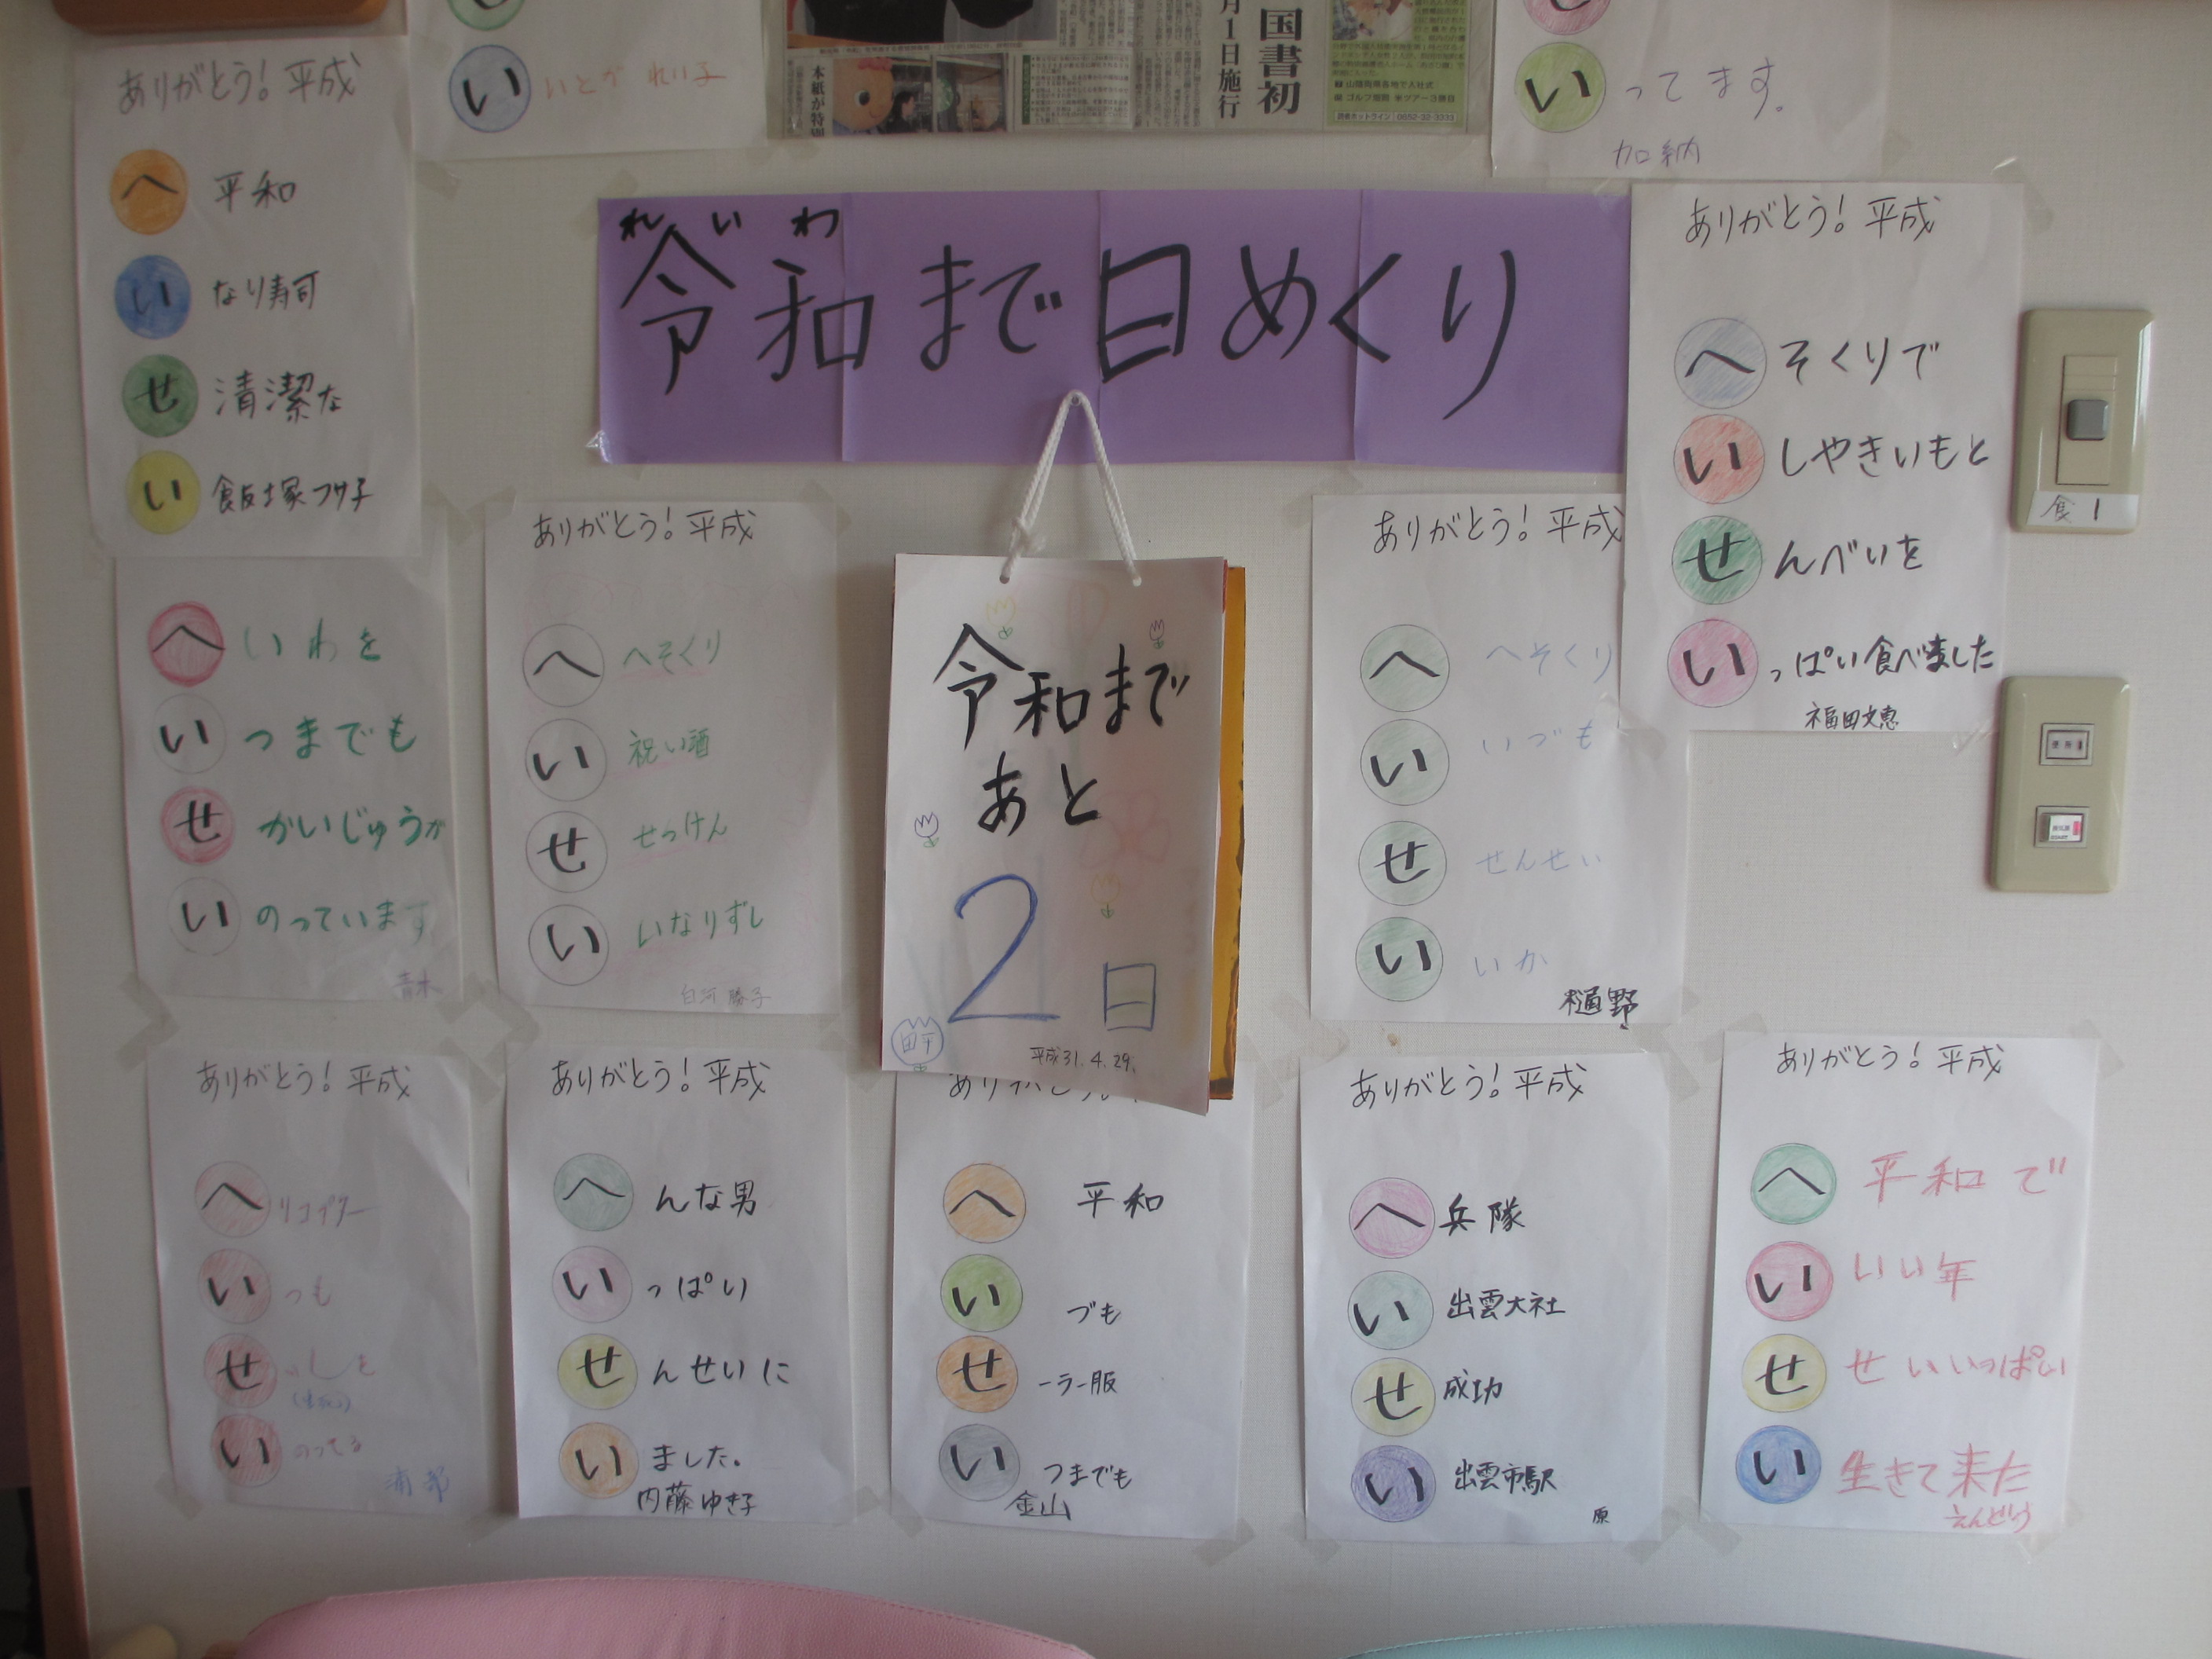 い いとが れい子
国書初
月1日施行
本紙が特別
山陰両県各地で入社式
ゴルフ国際 米ツアー3勝目
い ってます。
加納
ありがとう! 平成
へ 平和
い なり寿司
せ 清潔な
い 飯塚フサ子
れいわ
令和まで日めくり
ありがとう! 平成
へ そくりで
い しやきいもと
せ んべいを
い っぱい食べました
福田文恵
食1
へ いわを
い つまでも
せ かいじゅうが
い のっています
青木
ありがとう! 平成
へ へそくり
い 祝い酒
せ せっけん
い いなりずし
白河 勝子
令和まで
あと
2日
平成31.4.29.
ありがとう! 平成
へ へそくり
い いづも
せ せんせい
い いか
樋野
ありがとう! 平成
へ リコプター
い つも
せ いしを
い のってる
浦部
ありがとう! 平成
へ んな男
い っぱい
せ んせいに
い ました。
内藤ゆき子
へ 平和
い づも
せ ーラー服
い つまでも
金山
ありがとう! 平成
へ 兵隊
い 出雲大社
せ 成功
い 出雲市駅
原
ありがとう! 平成
へ 平和で
い いい年
せ せいいっぱい
い 生きて来た
えんどう